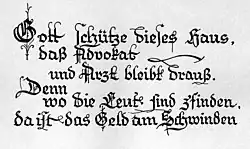 Gott schütze dieses Haus,
daß Advokat
und Arzt bleibt drauß.
Denn
wo die Leut' sind z'finden,
da ist das Geld am Schwinden